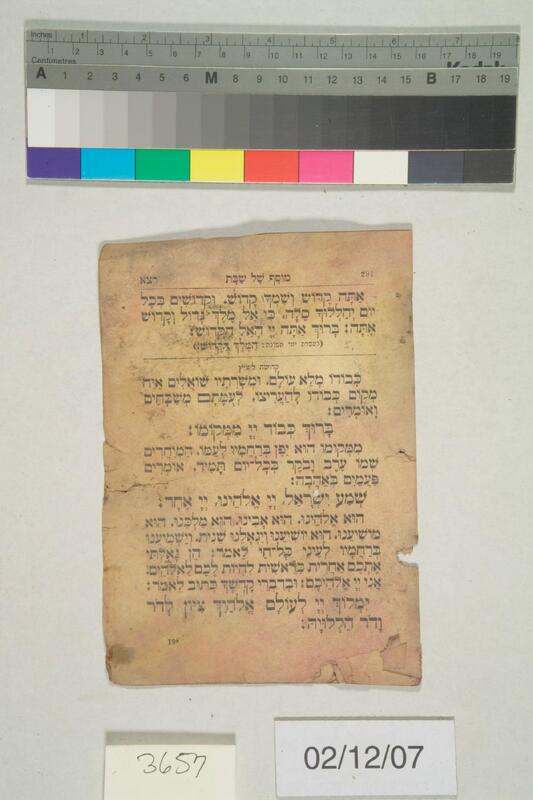 Inches 1 2 3 4 5 6 7 8
Centimetres 1 2 3 4 5 6 7 8 9 10 11 12 13 14 15 16 17 18 19
A 1 2 3 4 5 6 M 8 9 10 11 12 13 14 15 B 17 18 19
רצא מוסף של שבת 291
אַתָּה קָדוֹשׁ וְשִׁמְךָ קָדוֹשׁ, וּקְדוֹשִׁים בְּכָל
יוֹם יְהַלְלוּךָ סֶּלָה, כִּי אֵל מֶלֶךְ גָּדוֹל וְקָדוֹשׁ
אָתָּה: בָּרוּךְ אַתָּה יְיָ הָאֵל הַקָּדוֹשׁ:
הַמֶּלֶךְ הַקָּדוֹשׁ:)
קדושה לש״ץ
כְּבוֹדוֹ מָלֵא עוֹלָם, וּמְשָׁרְתָיו שׁוֹאֲלִים אַיֵּה
מְקוֹם כְּבוֹדוֹ לְהַעֲרִיצוֹ, לְעֻמָּתָם מְשַׁבְּחִים
וְאוֹמְרִים:
בָּרוּךְ כְּבוֹד יְיָ מִמְּקוֹמוֹ:
מִמְּקוֹמוֹ הוּא יִפֶן בְּרַחֲמָיו לְעַמּוֹ, הַמְיַחֲדִים
שְׁמוֹ עֶרֶב וָבֹקֶר בְּכָל־יוֹם תָּמִיד, אוֹמְרִים
פַּעֲמַיִם בְּאַהֲבָה:
שְׁמַע יִשְׂרָאֵל, יְיָ אֱלֹהֵינוּ, יְיָ אֶחָד:
הוּא אֱלֹהֵינוּ, הוּא אָבִינוּ, הוּא מַלְכֵּנוּ, הוּא
מוֹשִׁיעֵנוּ, הוּא יוֹשִׁיעֵנוּ וְיִגְאָלֵנוּ שֵׁנִית, וְיַשְׁמִיעֵנוּ
בְּרַחֲמָיו לְעֵינֵי כָּל־חַי לֵאמֹר: הֵן גָּאַלְתִּי
אֶתְכֶם אַחֲרִית כְּרֵאשִׁית לִהְיוֹת לָכֶם לֵאלֹהִים:
אֲנִי יְיָ אֱלֹהֵיכֶם: וּבְדִבְרֵי קָדְשְׁךָ כָּתוּב לֵאמֹר:
יִמְלוֹךְ יְיָ לְעוֹלָם אֱלֹהַיִךְ צִיּוֹן לְדֹר
וָדֹר הַלְלוּיָהּ:
3657
02/12/07